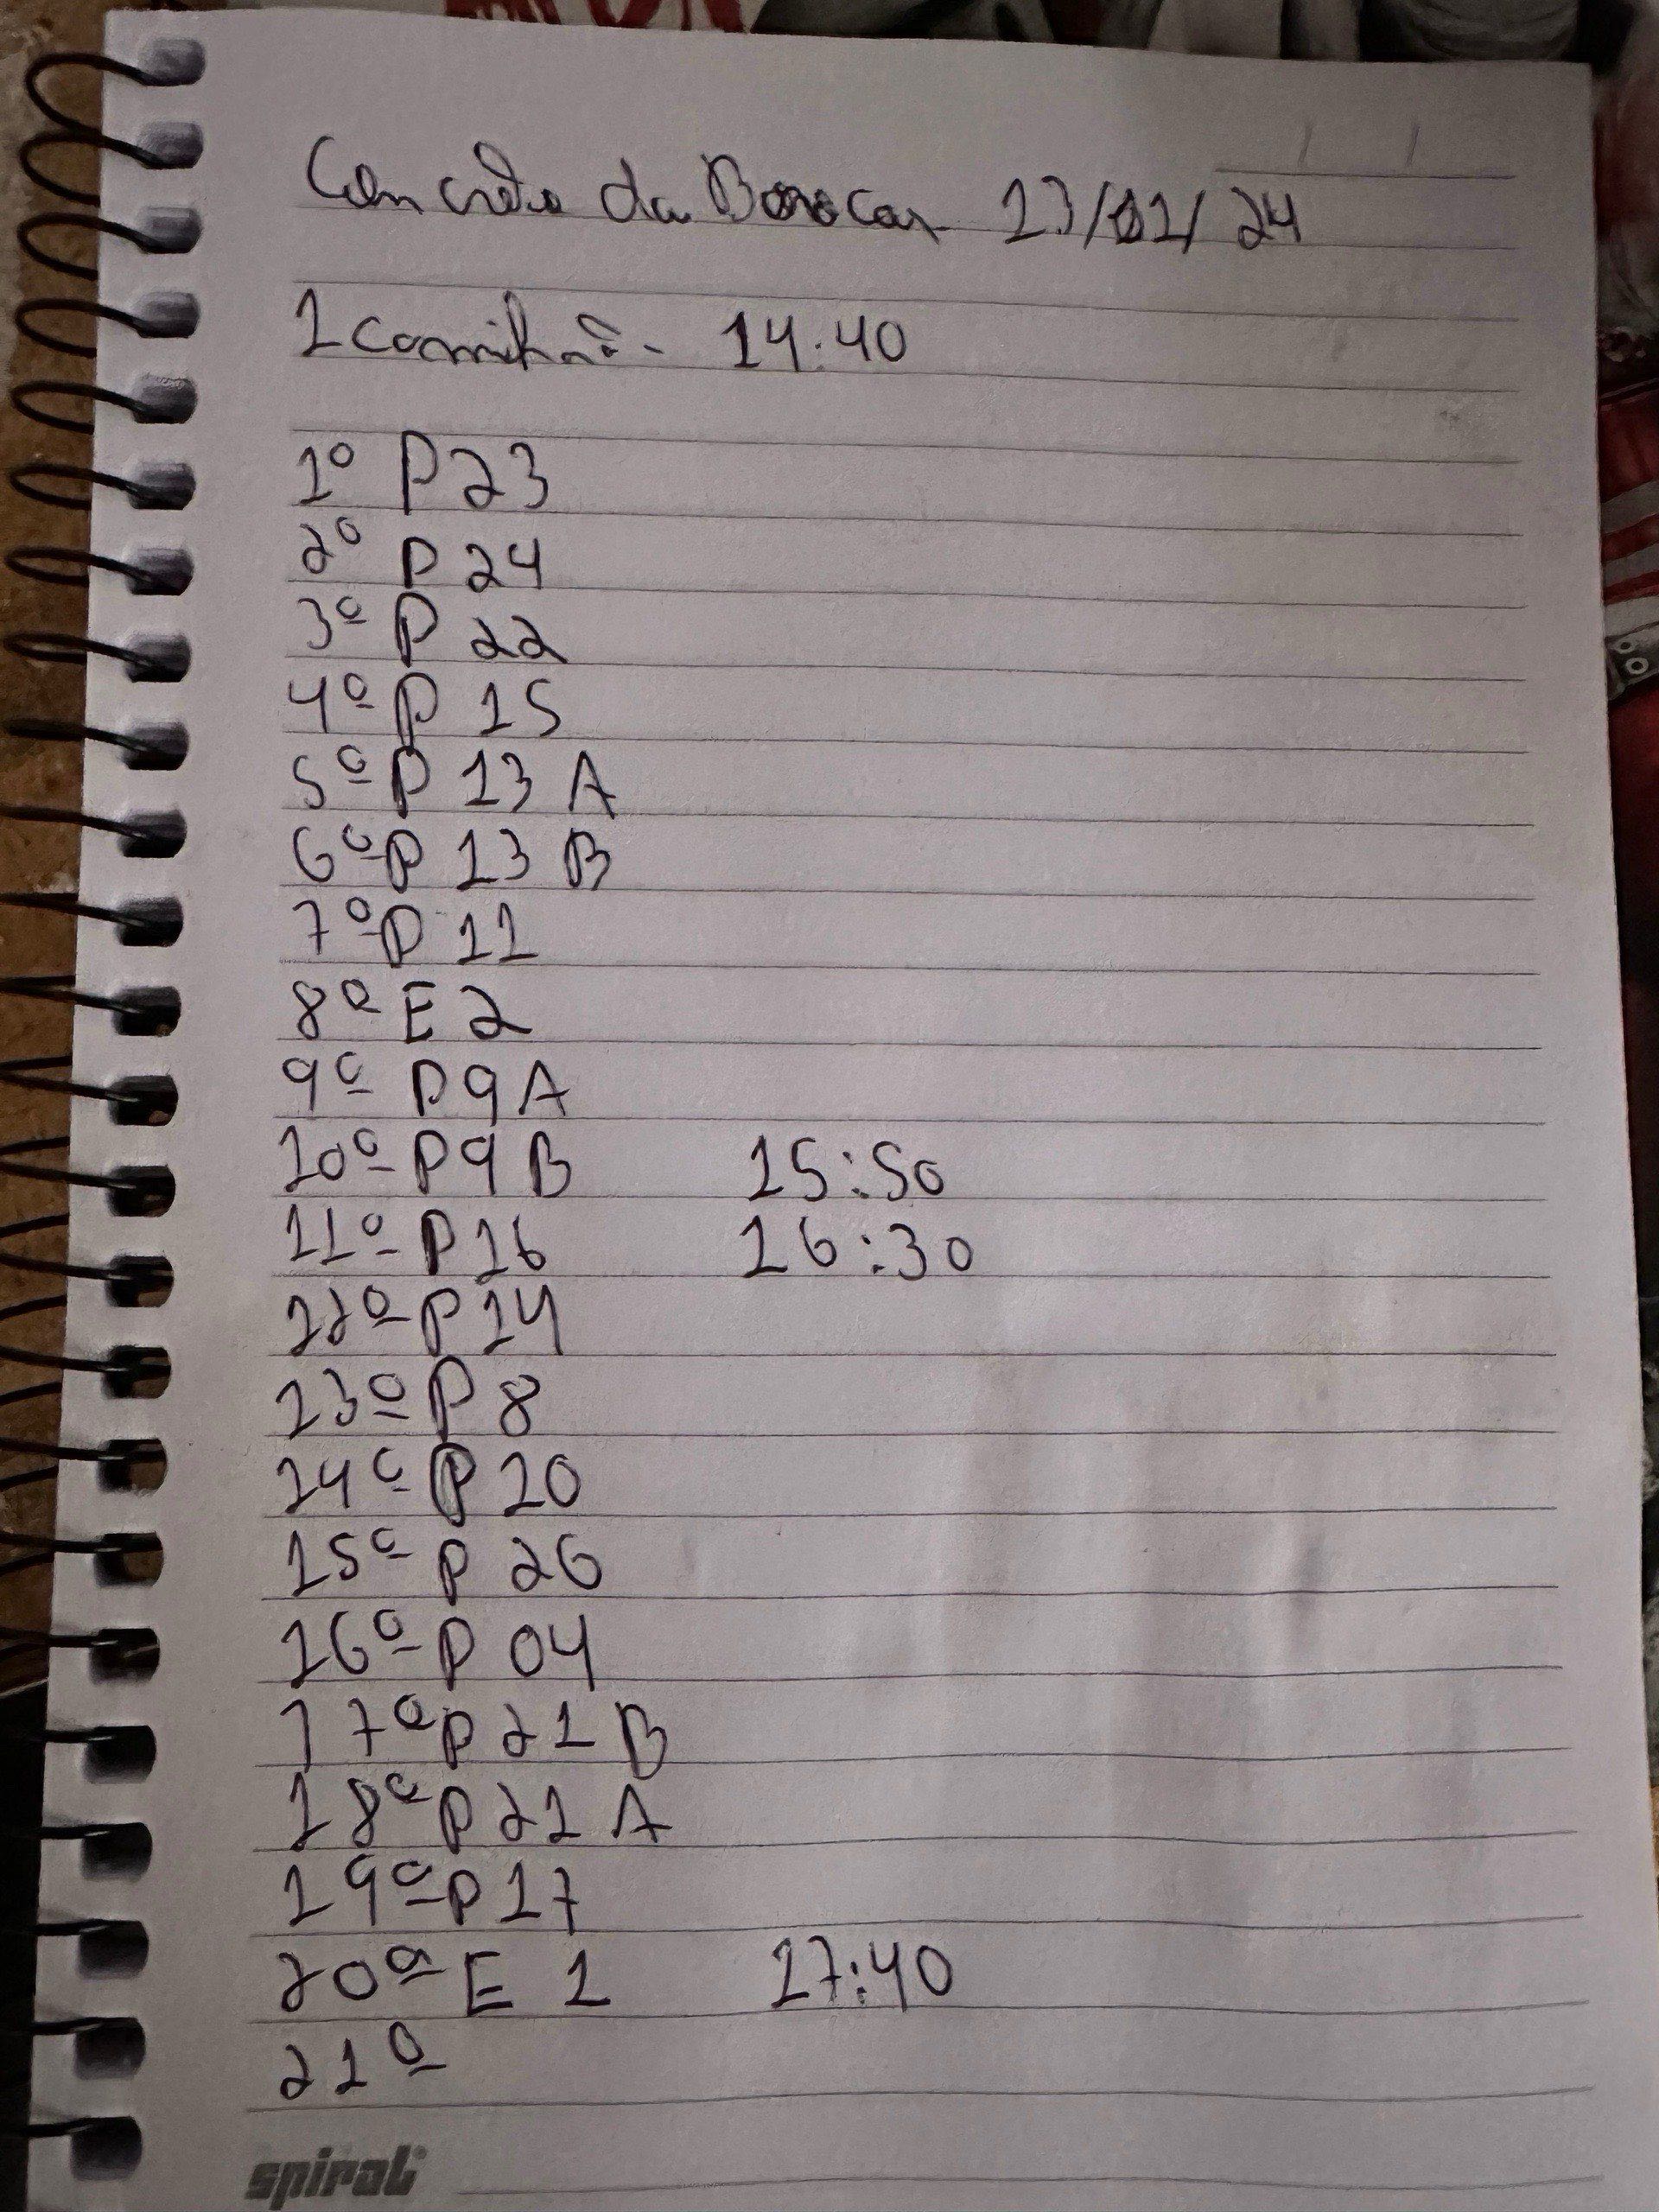 Concreto da 13/01/24
1 Caminhão - 14:40
1º P 23
2º P 24
3º P 22
4º P 15
5º P 13 A
6º P 13 B
7º P 11
8º E 2
9º P 9 A
10º P 9 B 15:50
11º P 16 16:30
12º P 14
13º P 8
14º P 10
15º P 26
16º P 04
17º P 21 B
18º P 21 A
19º P 17
20º E 1 17:40
21º
spiral